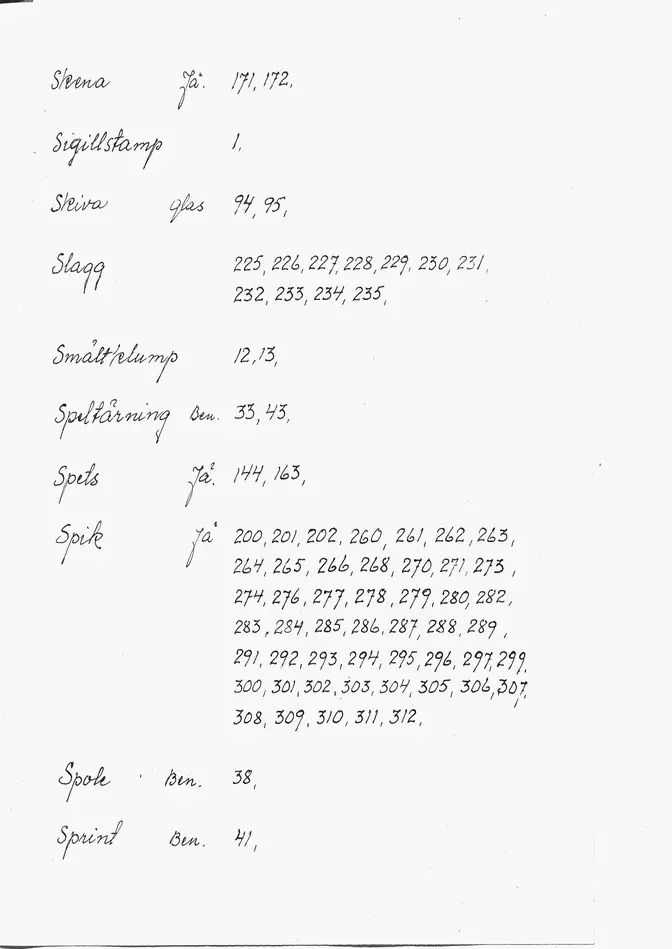 Skena Jä. 171, 172.
Sigillstamp 1,
Skiva glas 94, 95,
Slagg 225, 226, 227, 228, 229, 230, 231,
232, 233, 234, 235,
Smältklump 12, 13,
Speltärning Ben. 33, 43,
Spets Jä. 144, 163,
Spik Jä 200, 201, 202, 260, 261, 262, 263,
264, 265, 266, 268, 270, 271, 273,
274, 276, 277, 278, 279, 280, 282,
283, 284, 285, 286, 287, 288, 289,
291, 292, 293, 294, 295, 296, 297, 299,
300, 301, 302, 303, 304, 305, 306, 307,
308, 309, 310, 311, 312,
Spole Ben. 38,
Sprint Ben. 41,